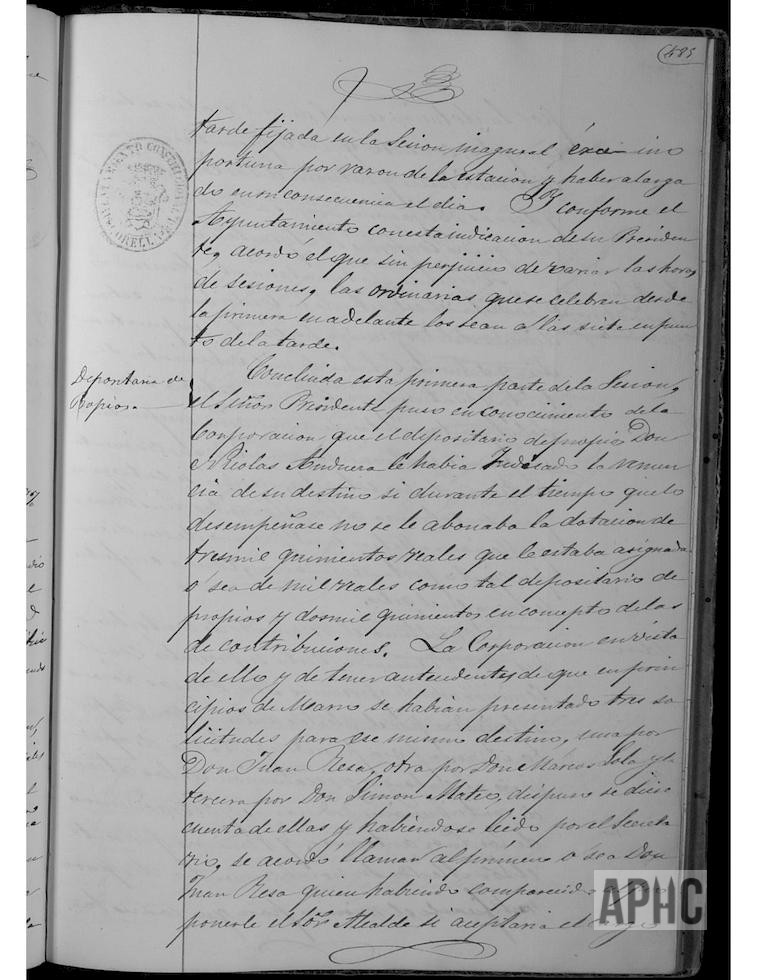 485
tarde fijada en la Sesion inagural éra ino
portuna por razon de la estacion y haber alarga
do en su consecuencia el dia. Y conforme el
Ayuntamiento con esta indicacion de su Presiden
te, acordó el que sin perjuicio de variar las horas
de sesiones, las ordinarias que se celebren desde
la primera en adelante los sean á las siete en pun
to de la tarde.
Depositaria de
Propios.
Concluida esta primera parte de la Sesion,
el Señor Presidente puso en conocimiento de la
Corporacion que el depositario de propios Don
Nicolas le habia indicado la renun
cia de su destino si durante el tiempo que lo
desempeñase no se le abonaba la dotacion de
tresmil quinientos reales que le estaba asignada
o sea de mil reales como tal depositario de
propios y dosmil quinientos en concepto de las
de contribuciones. La Corporacion en vista
de ello y de tener antecedentes de que en prin
cipios de Marzo se habian presentado tres so
licitudes para ese mismo destino, una por
Don Juan Resa, otra por Don Marcos Sola y la
tercera por Don Simon Mateo, dispuso se diese
cuenta de ellas y habiendose leido por el Secreta
rio, se acordó llamar al primero o sea Don
Juan Resa quien habiendo comparecido
ponerle el Sor Alcalde si aceptaria el cargo
APHC